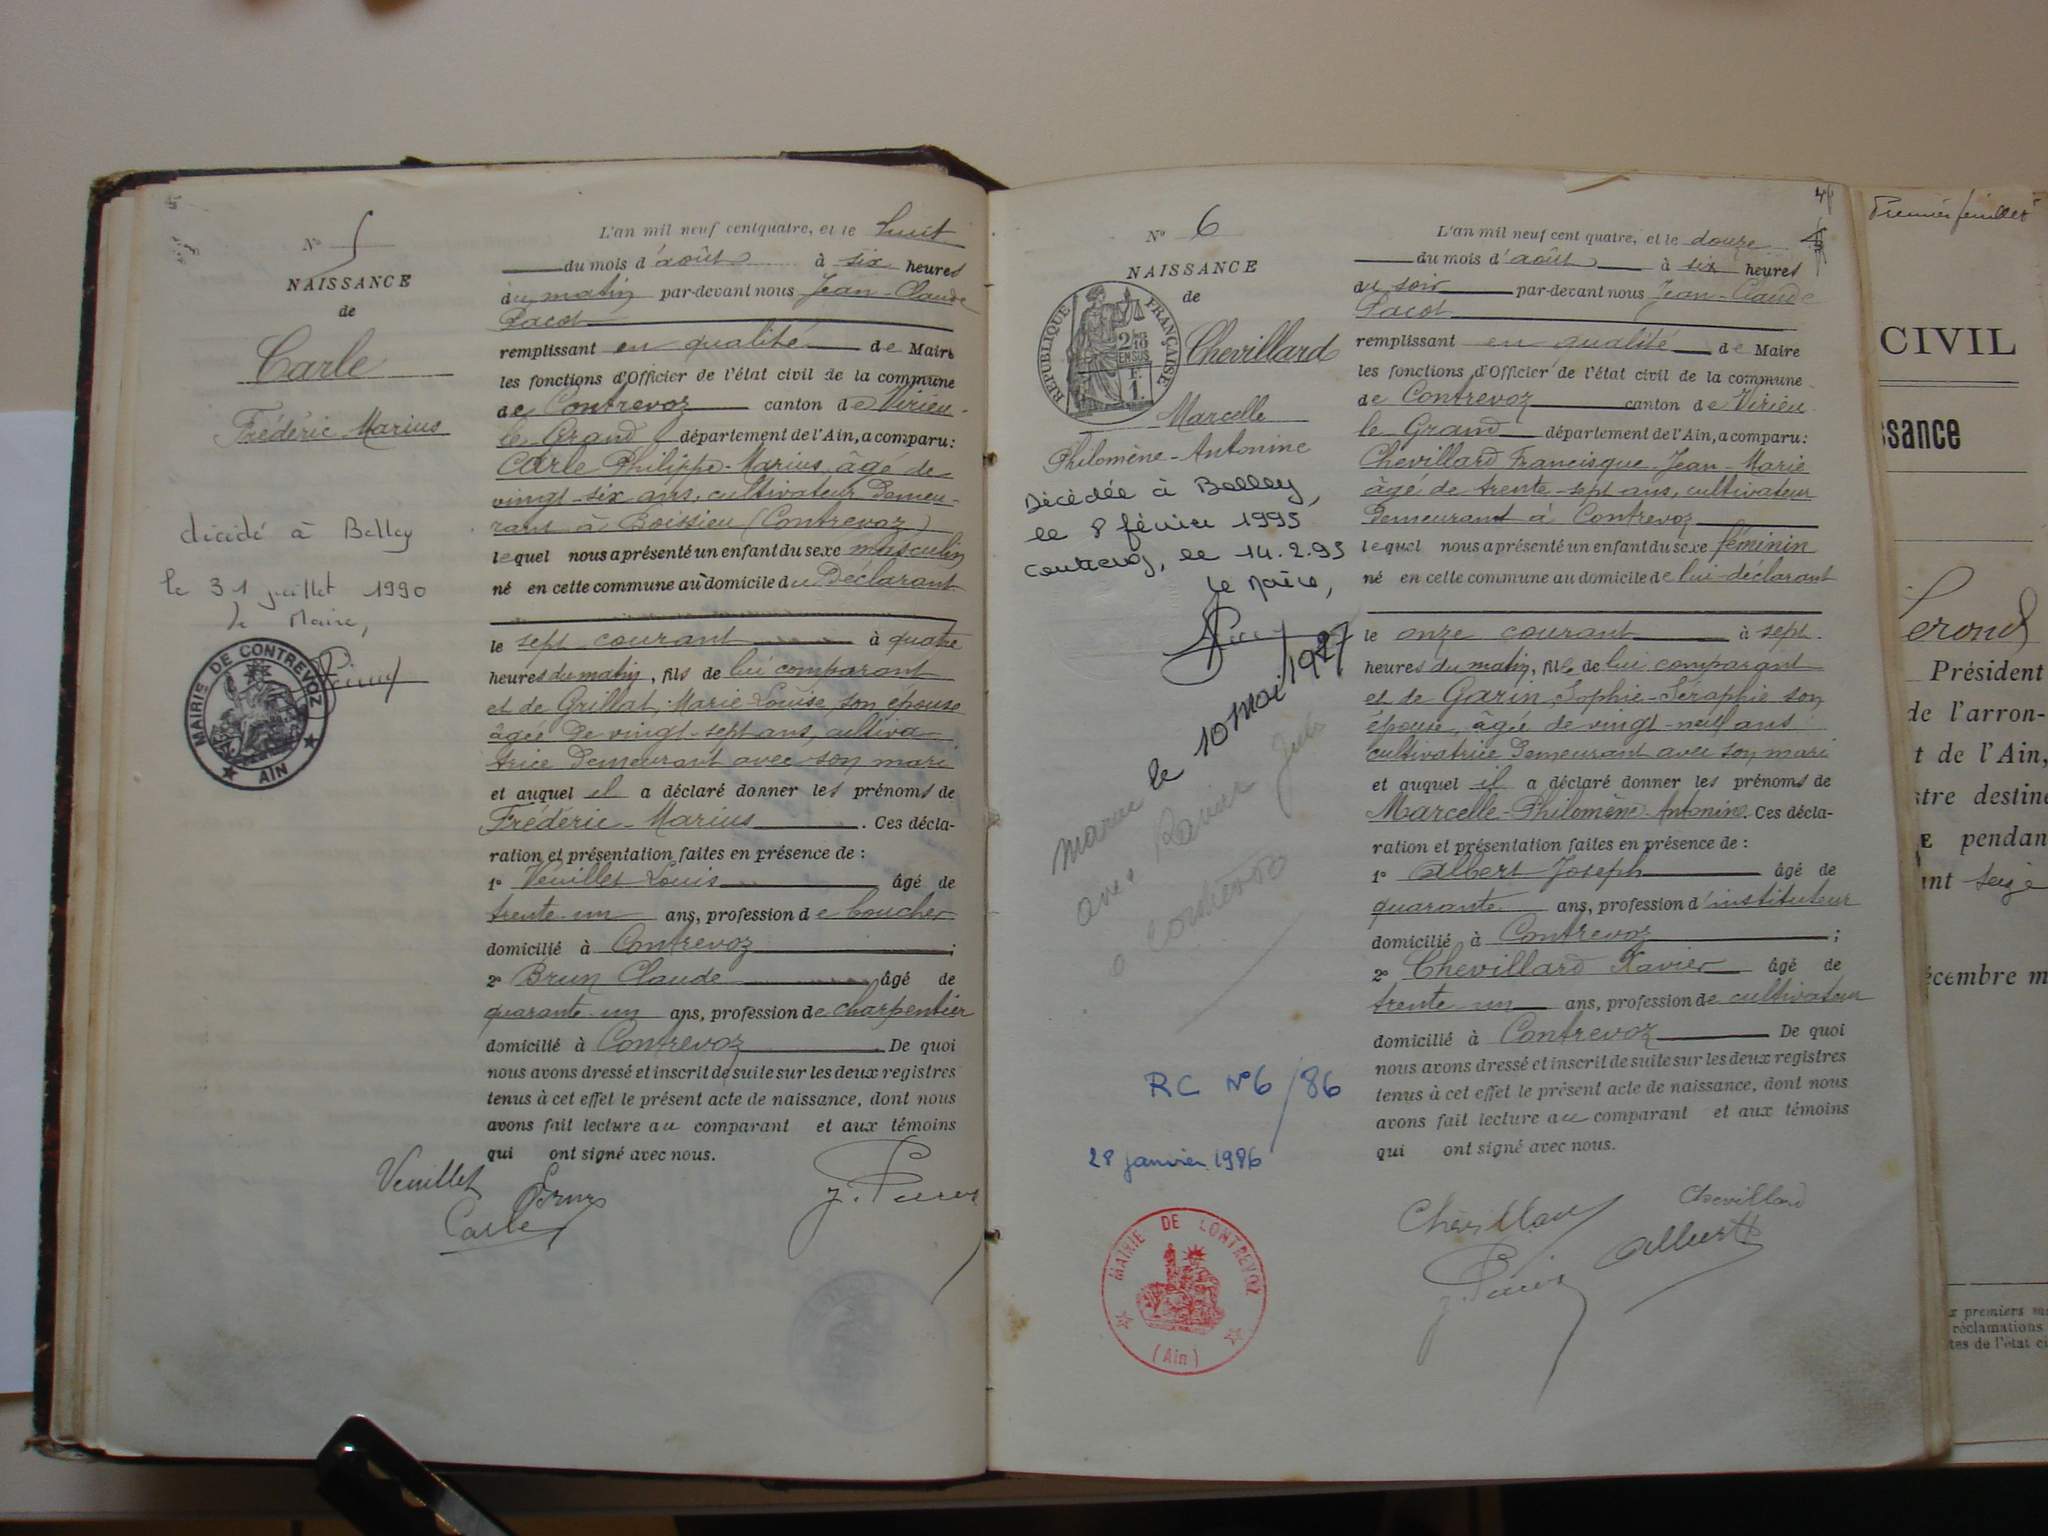 N° 5
NAISSANCE
de
Carle
Frédéric Marius
décédé à Belley
le 31 juillet 1990
le Maire,
MAIRIE DE CONTREVOZ
AIN
L'an mil neuf cent quatre, et le huit
du mois d'août à six heures
du matin par-devant nous Jean-Claude
Pacot
remplissant en qualité de Maire
les fonctions d'Officier de l'état civil de la commune
de Contrevoz canton de Virieu-
le Grand département de l'Ain, a comparu:
Carle Philippe-Marius, âgé de
vingt-six ans, cultivateur demeu-
rant à Boissieu (Contrevoz)
lequel nous a présenté un enfant du sexe masculin
né en cette commune au domicile du Déclarant
le sept courant à quatre
heures du matin, fils de lui comparant
et de Grillat, Marie Louise, son épouse
âgée de vingt-sept ans, cultiva-
trice demeurant avec son mari
et auquel il a déclaré donner les prénoms de
Frédéric-Marius. Ces décla-
ration et présentation faites en présence de :
1° Veuillet Louis âgé de
trente-un ans, profession de boucher
domicilié à Contrevoz ;
2° Brun Claude âgé de
quarante-un ans, profession de charpentier
domicilié à Contrevoz De quoi
nous avons dressé et inscrit de suite sur les deux registres
tenus à cet effet le présent acte de naissance, dont nous
avons fait lecture au comparant et aux témoins
qui ont signé avec nous.
Veuillet Brun
Carle
4
N° 6
NAISSANCE
de
REPUBLIQUE FRANÇAISE
2/10 EN SUS
F. 1.
Chevillard
Marcelle
Philomène-Antonine
Décédée à Belley,
le 8 février 1995
Contrevoz, le 14.2.95
Le Maire,
Mariée le 10 mai 1927
avec Ravier Jules
à Contrevoz
RC N°6/86
28 janvier 1986
MAIRIE DE CONTREVOZ
(Ain)
L'an mil neuf cent quatre, et le douze
du mois d'août à six heures
du soir par-devant nous Jean-Claude
Pacot
remplissant en qualité de Maire
les fonctions d'Officier de l'état civil de la commune
de Contrevoz canton de Virieu
le Grand département de l'Ain, a comparu:
Chevillard Francisque Jean-Marie
âgé de trente-sept ans, cultivateur
demeurant à Contrevoz
lequel nous a présenté un enfant du sexe féminin
né en cette commune au domicile de lui-déclarant
le onze courant à sept
heures du matin, fille de lui comparant
et de Garin, Sophie-Séraphie son
épouse, âgée de vingt-neuf ans
cultivatrice demeurant avec son mari
et auquel il a déclaré donner les prénoms de
Marcelle-Philomène-Antonine. Ces décla-
ration et présentation faites en présence de :
1° Albert Joseph âgé de
quarante ans, profession d'instituteur
domicilié à Contrevoz ;
2° Chevillard Xavier âgé de
trente un ans, profession de cultivateur
domicilié à Contrevoz De quoi
nous avons dressé et inscrit de suite sur les deux registres
tenus à cet effet le présent acte de naissance, dont nous
avons fait lecture au comparant et aux témoins
qui ont signé avec nous.
Chevillard Chevillard
Albert
Premier feuillet
CIVIL
ssance
Président
de l'arron-
t de l'Ain,
stre destiné
E pendan
nt seize
écembre m
x premiers m
réclamations
tes de l'état ci